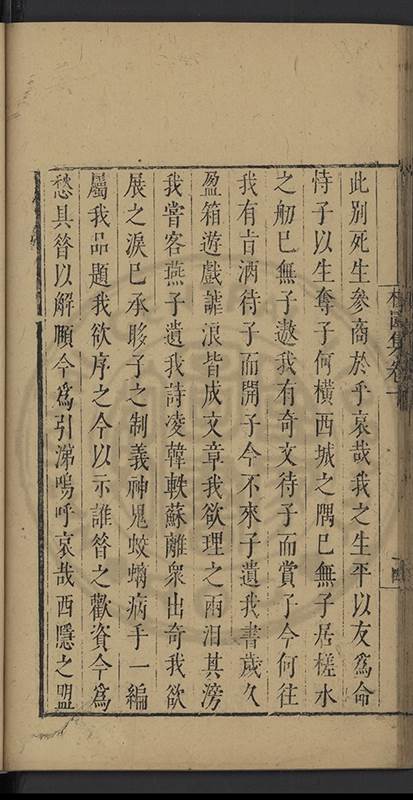 此別死生參商於乎哀哉我之生平以友爲命
恃子以生奪子何橫西城之隅已無子居槎水
之舠已無子遨我有奇文待子而賞子今何往
我有旨酒待子而開子今不來子遺我書歲久
盈箱遊戲謔浪皆成文章我欲理之雨泪其滂
我嘗客燕子遺我詩凌韓軼蘇離衆出奇我欲
展之淚已承眵子之制義神鬼蛟螭病手一編
屬我品題我欲序之今以示誰昝之歡資今爲
愁具昝以解願今爲引涕嗚呼哀哉西隱之盟
集卷